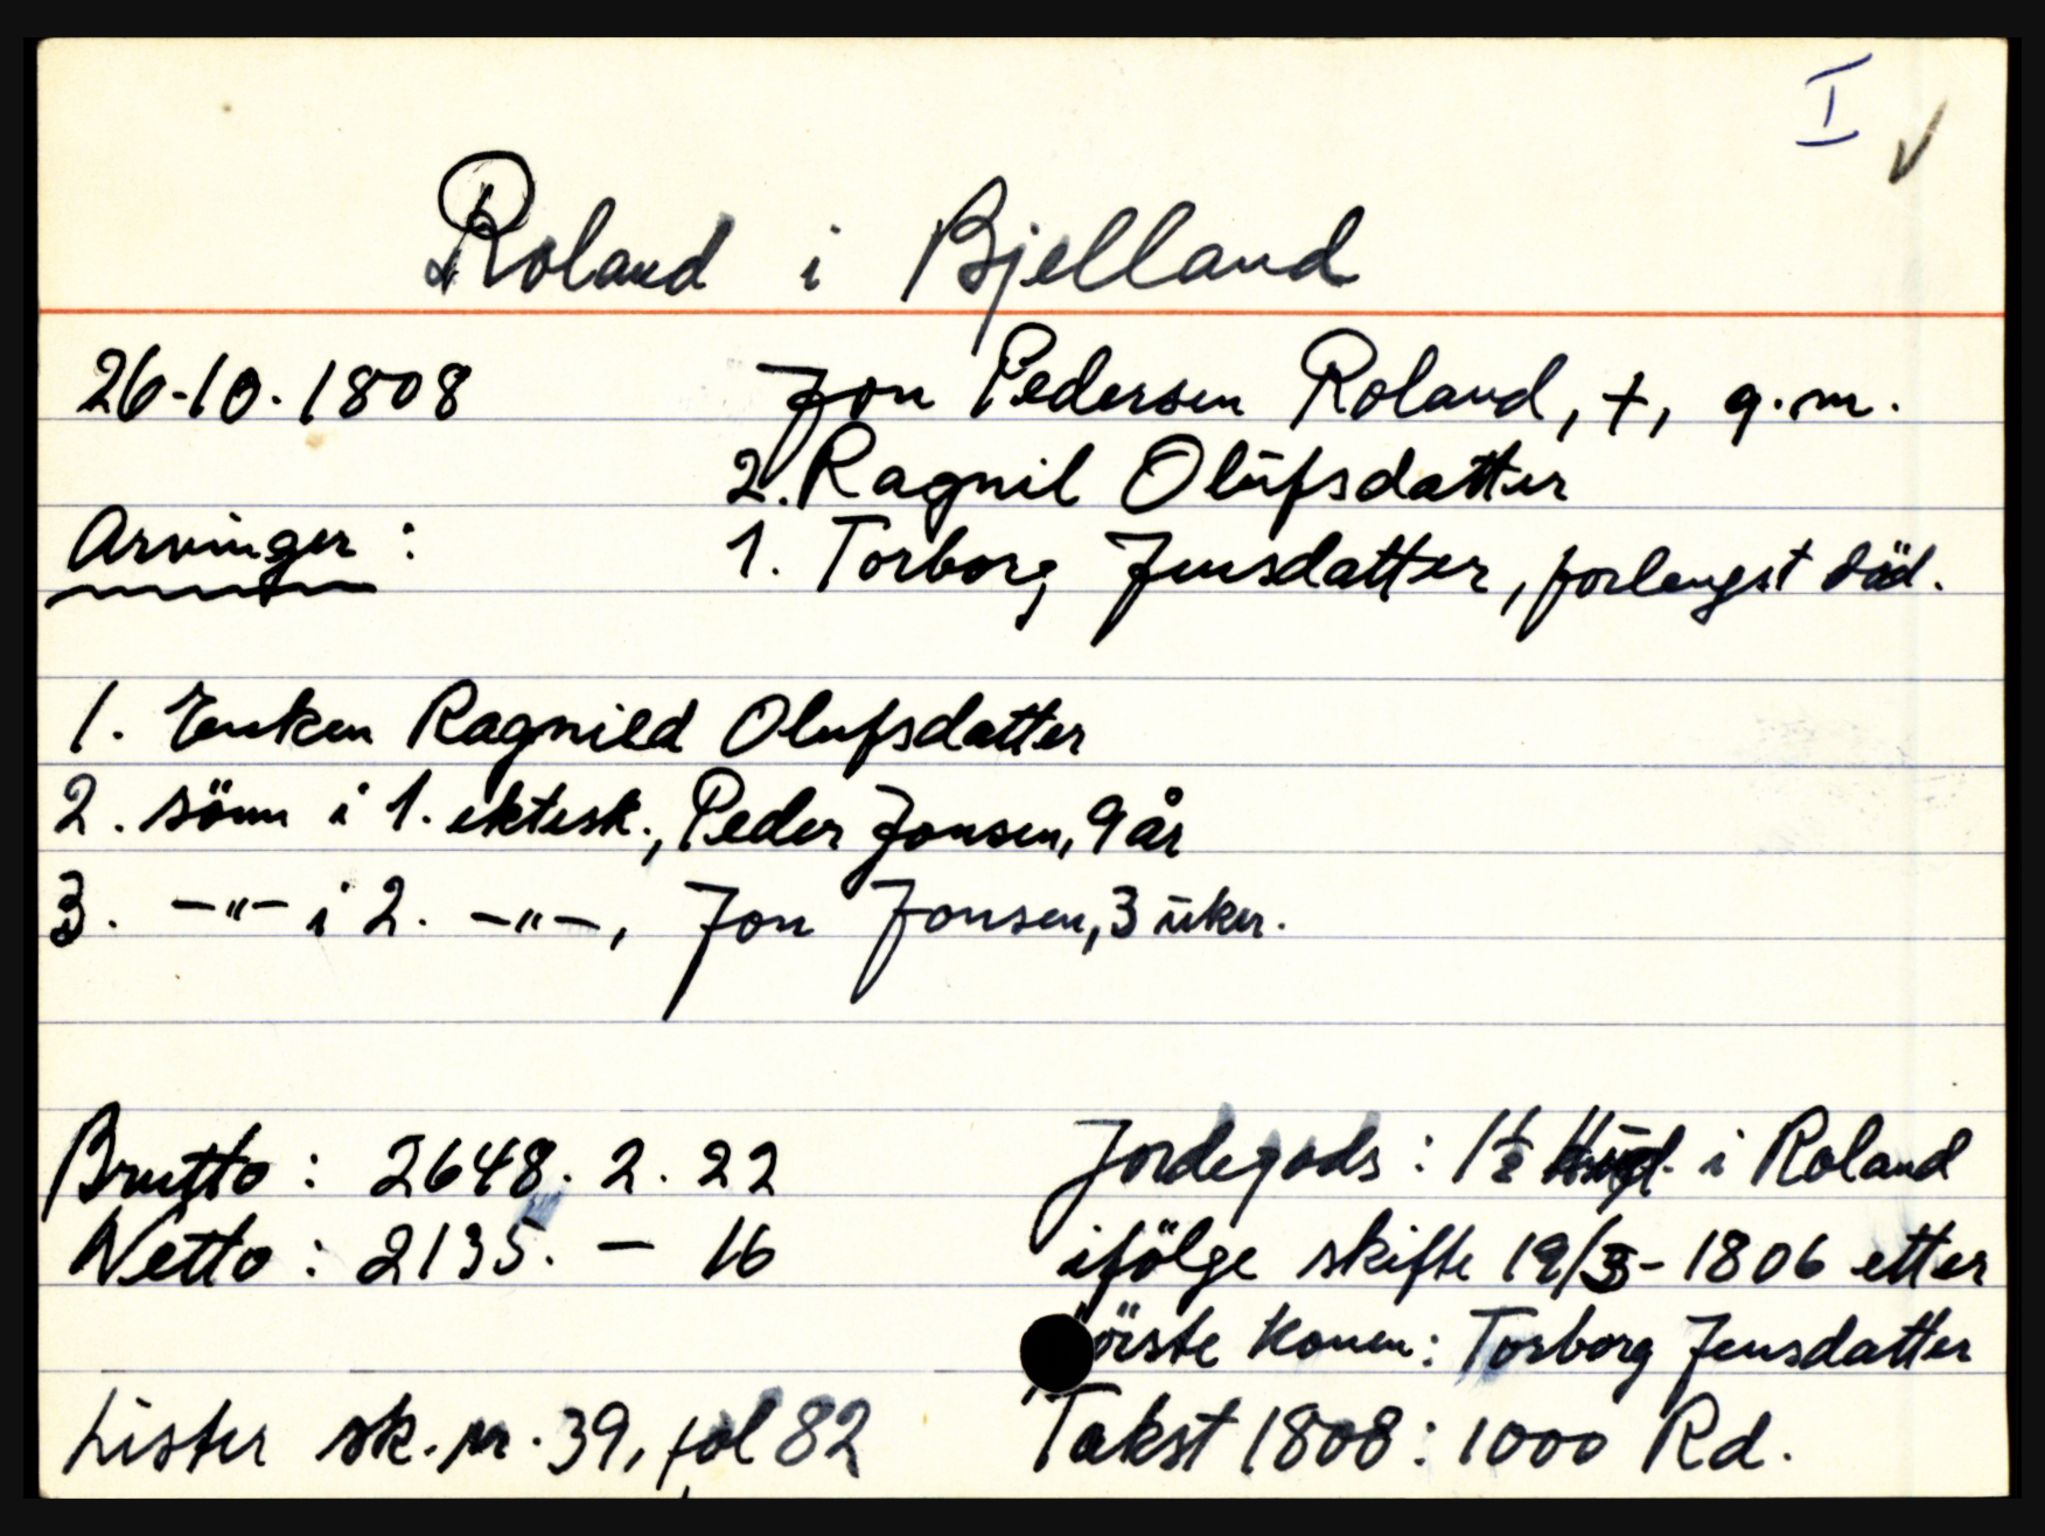 I ✓
Roland i Bjelland
26-10-1808 Jon Pedersen Roland, +, g.m.
2. Ragnil Olufsdatter
Arvinger: 1. Torborg Jensdatter, forlengst död.
1. Enken Ragnild Olufsdatter
2. sönn i 1. ektesk., Peder Jonsen, 9 år
3. -"- i 2. -"-, Jon Jonsen, 3 uker.
Brutto: 2648. 2. 22 Jordegods: 1½ Hud. i Roland
Netto: 2135. - 16 ifölge skifte 19/3-1806 etter
örste konen: Torborg Jensdatter
Lister sk. nr. 39, fol 82 Takst 1808: 1000 Rd.